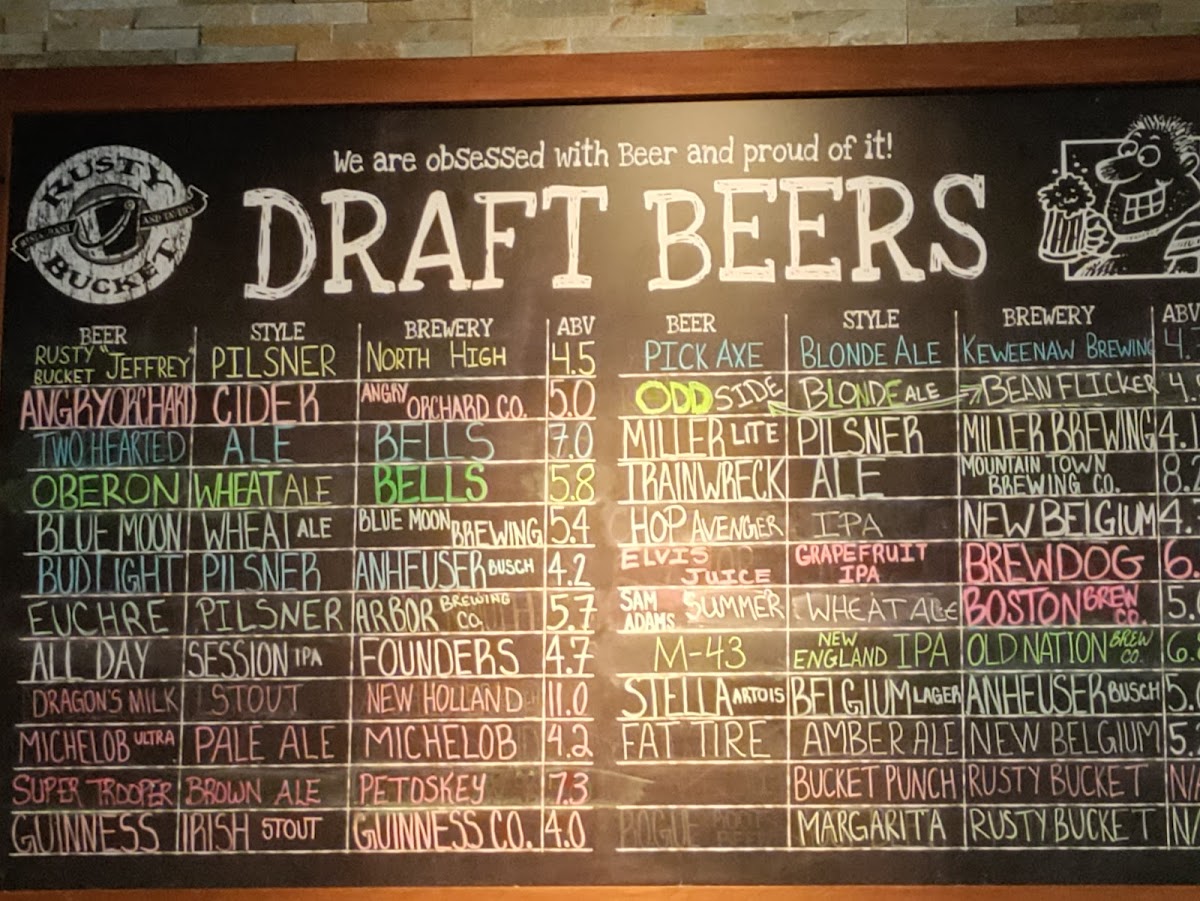 We are obsessed with Beer and proud of it!
DRAFT BEERS
RUSTY
BUCKET
BEER STYLE BREWERY ABV
RUSTY BUCKET "JEFFREY" PILSNER NORTH HIGH 4.5
ANGRY ORCHARD CIDER ANGRY ORCHARD CO. 5.0
TWO HEARTED ALE BELLS 7.0
OBERON WHEAT ALE BELLS 5.8
BLUE MOON WHEAT ALE BLUE MOON BREWING 5.4
BUD LIGHT PILSNER ANHEUSER BUSCH 4.2
EUCHRE PILSNER ARBOR BREWING CO. 5.7
ALL DAY SESSION IPA FOUNDERS 4.7
DRAGON'S MILK STOUT NEW HOLLAND 11.0
MICHELOB ULTRA PALE ALE MICHELOB 4.2
SUPER TROOPER BROWN ALE PETOSKEY 7.3
GUINNESS IRISH STOUT GUINNESS CO. 4.0
BEER STYLE BREWERY ABV
PICK AXE BLONDE ALE KEWEENAW BREWING 4.
ODD SIDE BLONDE ALE BEAN FLICKER 4.
MILLER LITE PILSNER MILLER BREWING 4.
TRAINWRECK ALE MOUNTAIN TOWN BREWING CO. 8.2
HOP AVENGER IPA NEW BELGIUM 4.
ELVIS JUICE GRAPEFRUIT IPA BREWDOG 6.
SAM ADAMS SUMMER WHEAT ALE BOSTON BREW CO. 5.
M-43 NEW ENGLAND IPA OLD NATION BREW CO. 6.
STELLA ARTOIS BELGIUM LAGER ANHEUSER BUSCH 5.
FAT TIRE AMBER ALE NEW BELGIUM 5.
BUCKET PUNCH RUSTY BUCKET N/
ROGUE MARGARITA RUSTY BUCKET N/